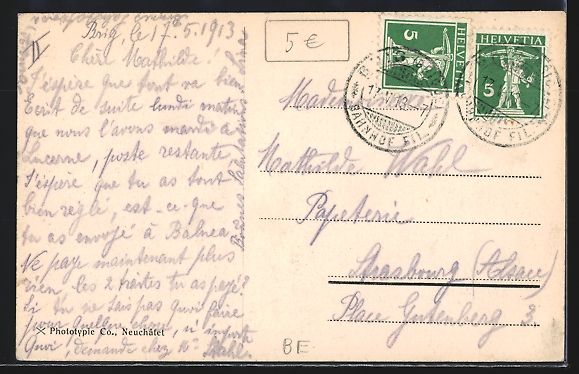 II
Brig, le 17.5.1913
Chère Mathilde!
J'espère que tout va bien
Ecrit de suite lundi matin
que nous l'avons mardi à
Lucerne, poste restante
J'espère que tu as tout
bien réglé, est-ce-que
tu as envoyé à Balnea
Ne paye maintenant plus
rien les 2 traites tu as payé?
Si tu ne sais pas quoi faire
pour quelle chose, n'importe
quoi, demande chez Mr Wahl.
Bonnes salutations
Phototypie Co., Neuchâtel
5 €
HELVETIA
5
HELVETIA
5
BAHNHOF FIL.
BAHNHOF FIL.
Mademoiselle
Mathilde Wahl
Papeterie
Strasbourg (Alsace)
Place Gutenberg 3
BE